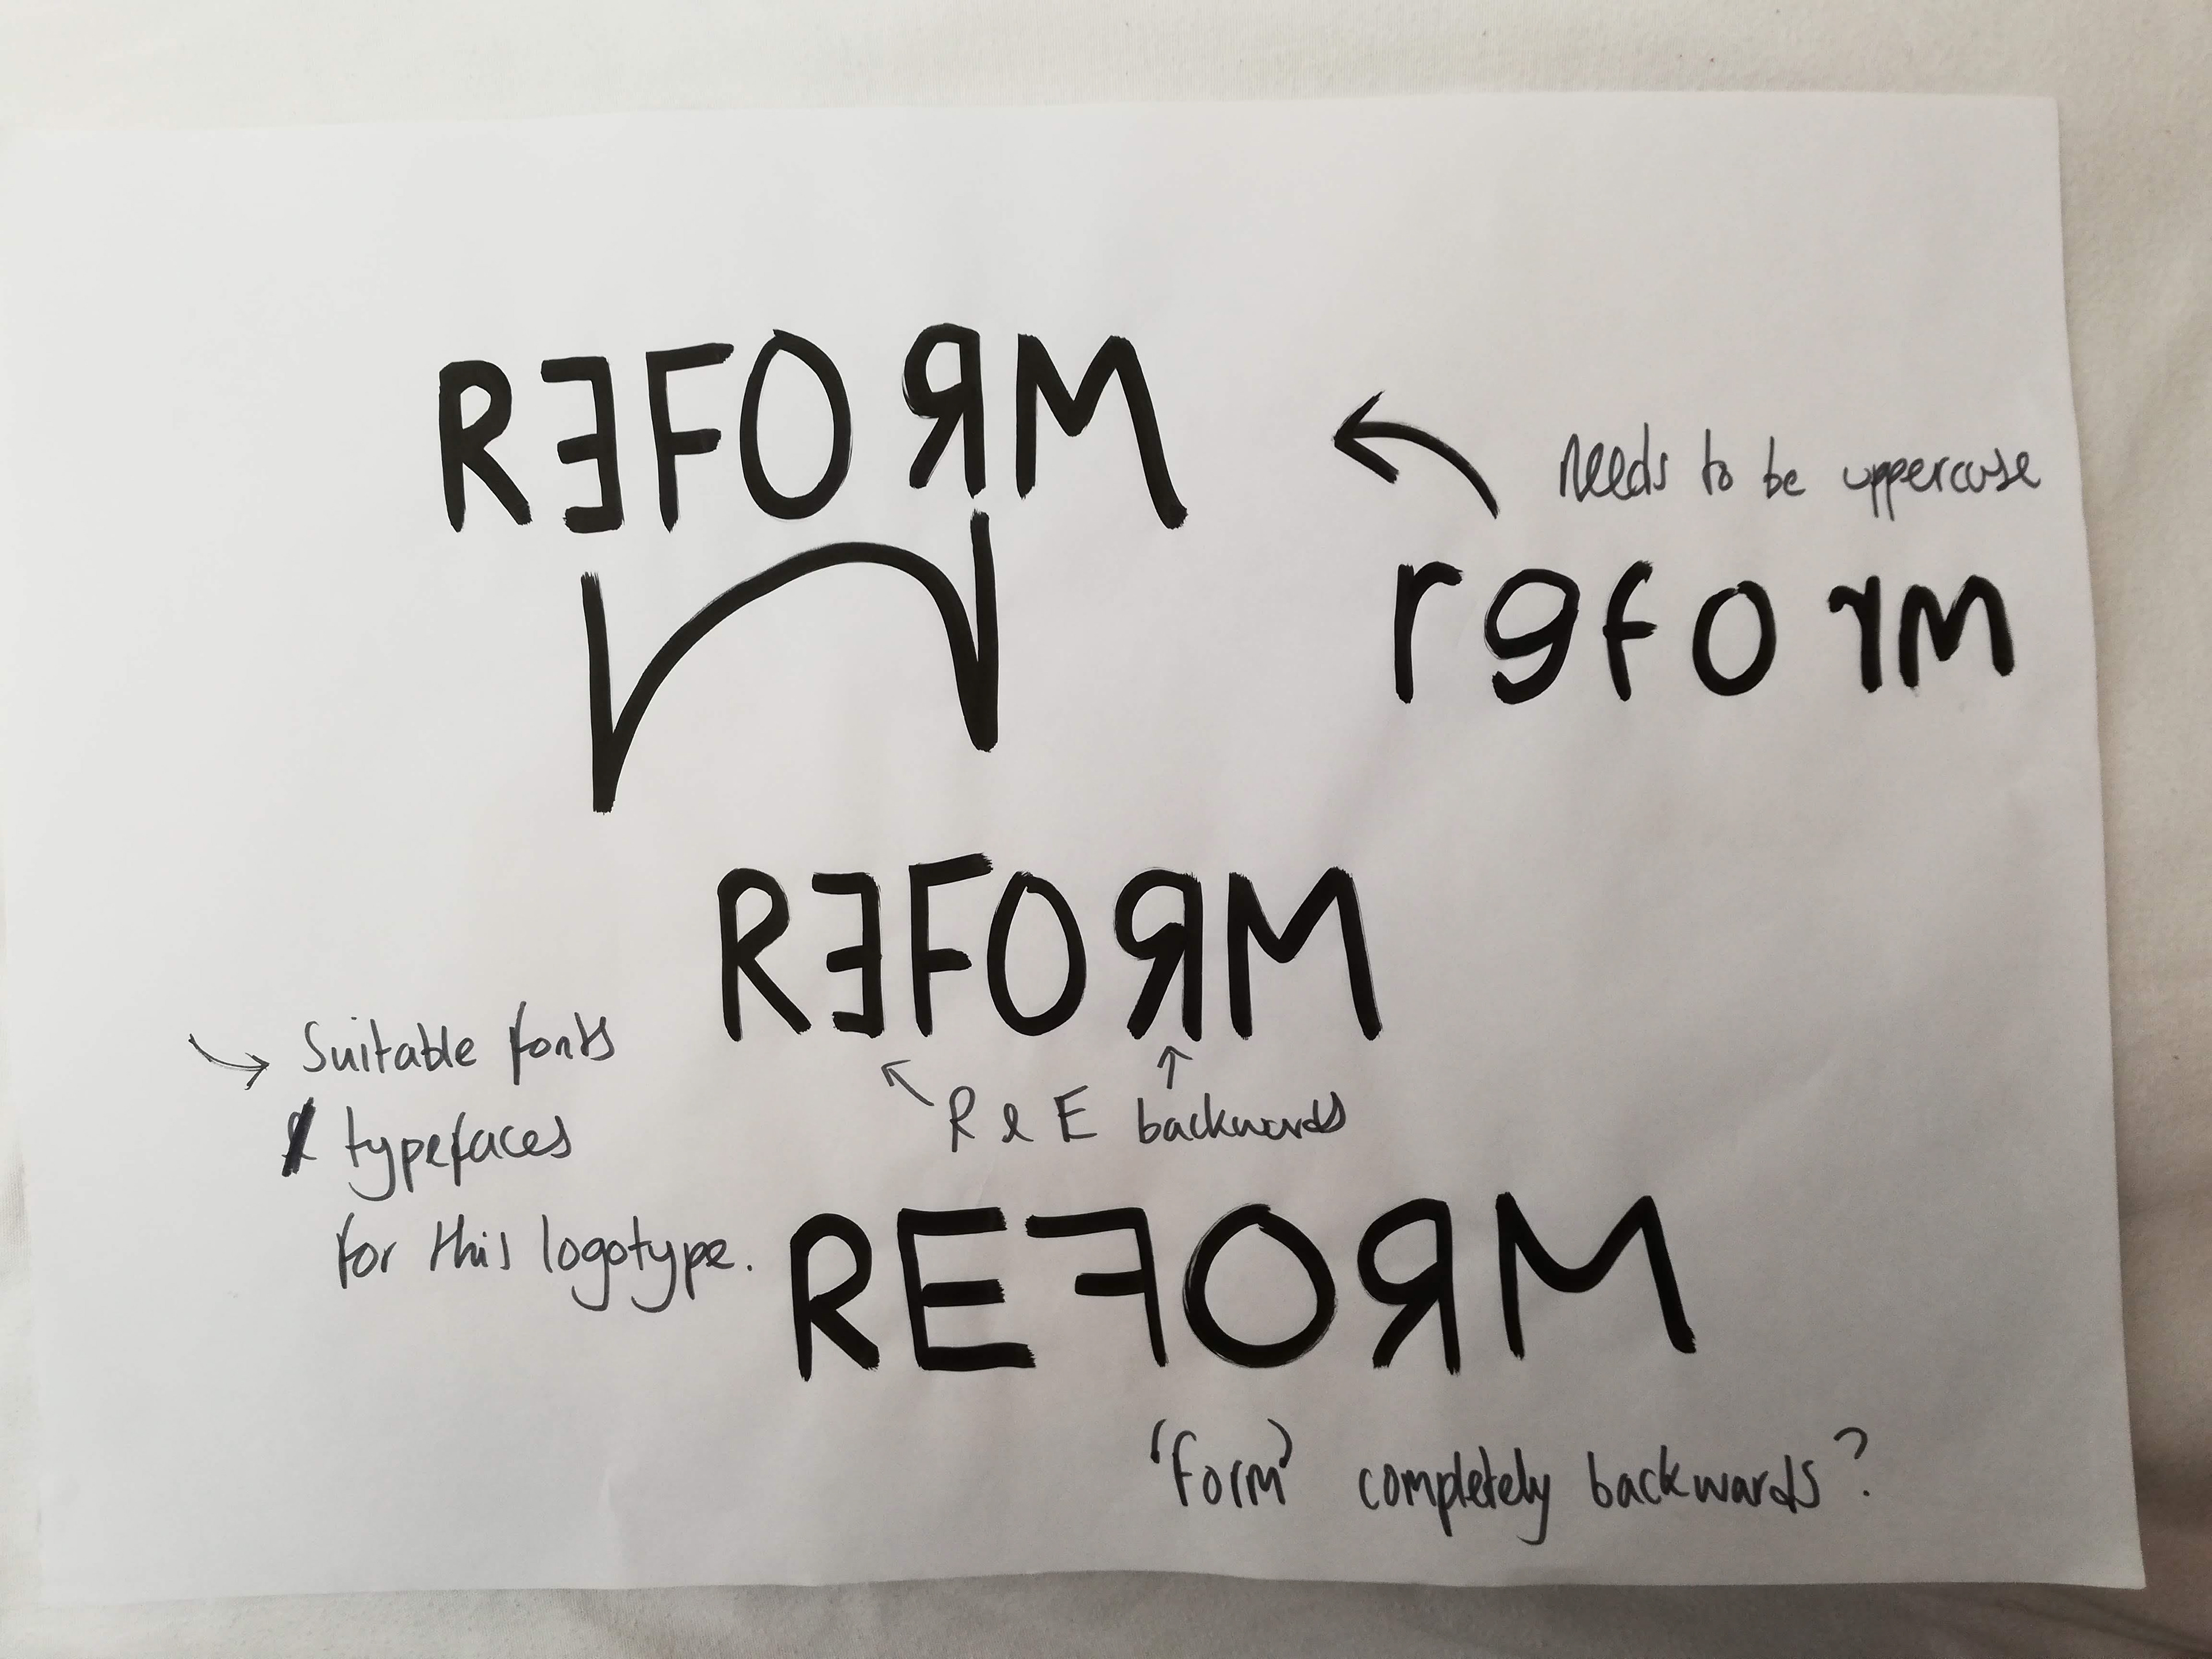 RƎFOЯM
needs to be uppercase
rɘfoɿm
RƎFOЯM
Suitable fonts
& typefaces
for this logotype.
R & E backwards
REꟻOЯM
'form' completely backwards?